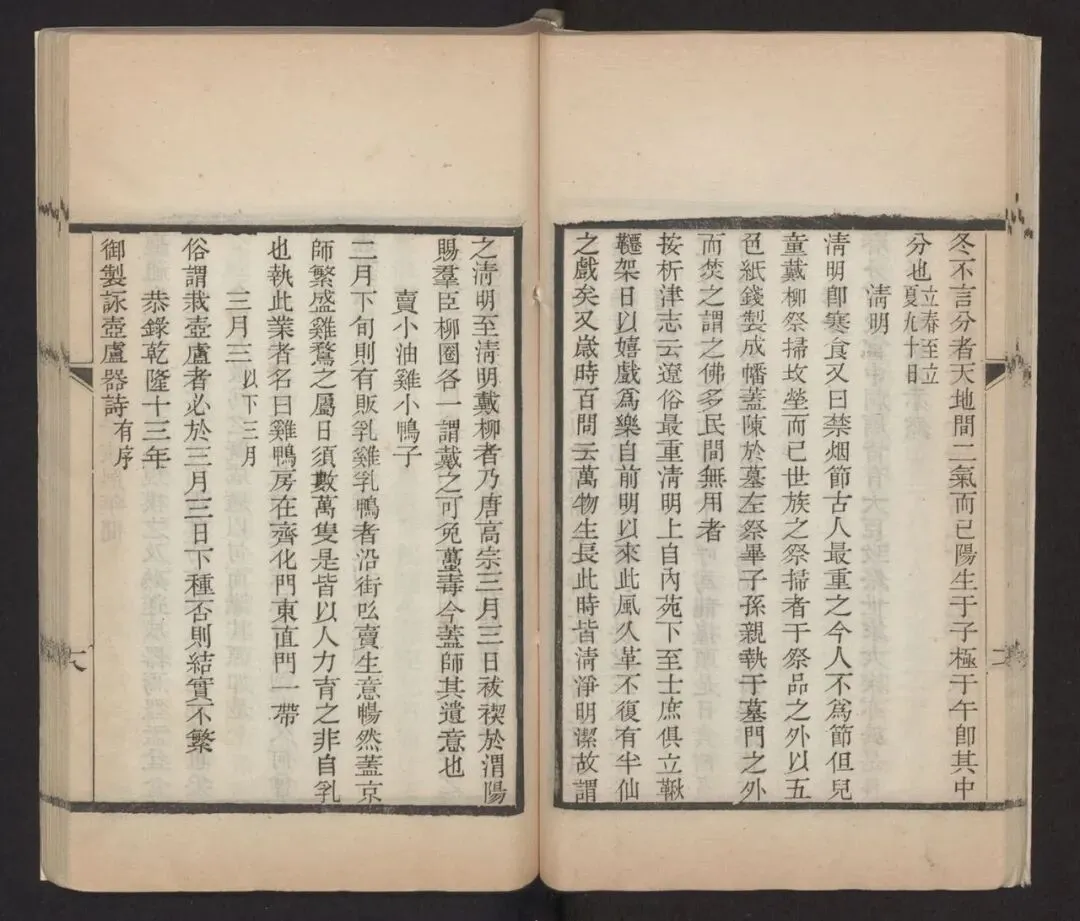 冬不言分者天地間二氣而已陽生于子極于午卽其中
分也立春至立
夏九十日
淸明
淸明卽寒食又曰禁烟節古人最重之今人不爲節但兒
童戴柳祭掃坟塋而已世族之祭掃者于祭品之外以五
色紙錢製成幡蓋陳於墓左祭畢子孫親執于墓門之外
而焚之謂之佛多民間無用者
按析津志云遼俗最重淸明上自內苑下至士庶俱立鞦
韆架日以嬉戲爲樂自前明以來此風久革不復有半仙
之戲矣又歲時百問云萬物生長此時皆淸淨明潔故謂
之淸明至淸明戴柳者乃唐高宗三月三日祓禊於渭陽
賜羣臣柳圈各一謂戴之可免蠆毒今蓋師其遺意也
賣小油雞小鴨子
二月下旬則有販乳雞乳鴨者沿街吆賣生意暢然蓋京
師繁盛雞鶩之屬日須數萬隻是皆以人力育之非自乳
也執此業者名曰雞鴨房在齊化門東直門一帶
三月三以下三月
俗謂栽壺盧者必於三月三日下種否則結實不繁
恭錄乾隆十三年
御製詠壺盧器詩有序